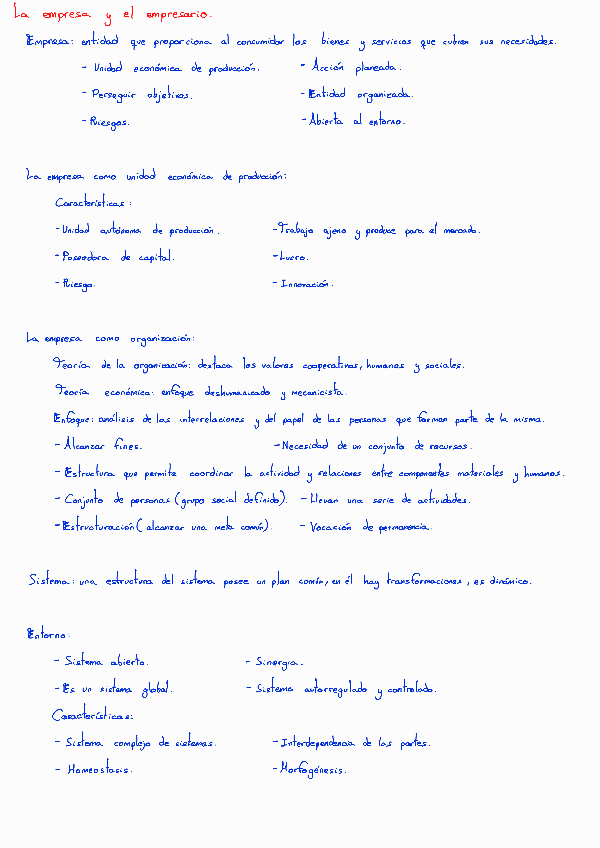 La empresa y el empresario.
Empresa: entidad que proporciona al consumidor los bienes y servicios que cubren sus necesidades.
- Unidad económica de producción. - Acción planeada.
- Perseguir objetivos. - Entidad organizada.
- Riesgos. - Abierta al entorno.
La empresa como unidad económica de producción:
Características:
- Unidad autónoma de producción. - Trabajo ajeno y produce para el mercado.
- Poseedora de capital. - Lucro.
- Riesgo. - Innovación.
La empresa como organización:
Teoría de la organización: destaca los valores cooperativos, humanos y sociales.
Teoría económica: enfoque deshumanizado y mecanicista.
Enfoque: análisis de las interrelaciones y del papel de las personas que forman parte de la misma.
- Alcanzar fines. - Necesidad de un conjunto de recursos.
- Estructura que permite coordinar la actividad y relaciones entre componentes materiales y humanos.
- Conjunto de personas (grupo social definido). - Llevan una serie de actividades.
- Estructuración (alcanzar una meta común). - Vocación de permanencia.
Sistema: una estructura del sistema posee un plan común, en él hay transformaciones, es dinámico.
Entorno:
- Sistema abierto. - Sinergia.
- Es un sistema global. - Sistema autorregulado y controlado.
Características:
- Sistema complejo de sistemas. - Interdependencia de las partes.
- Homeostasis. - Morfogénesis.